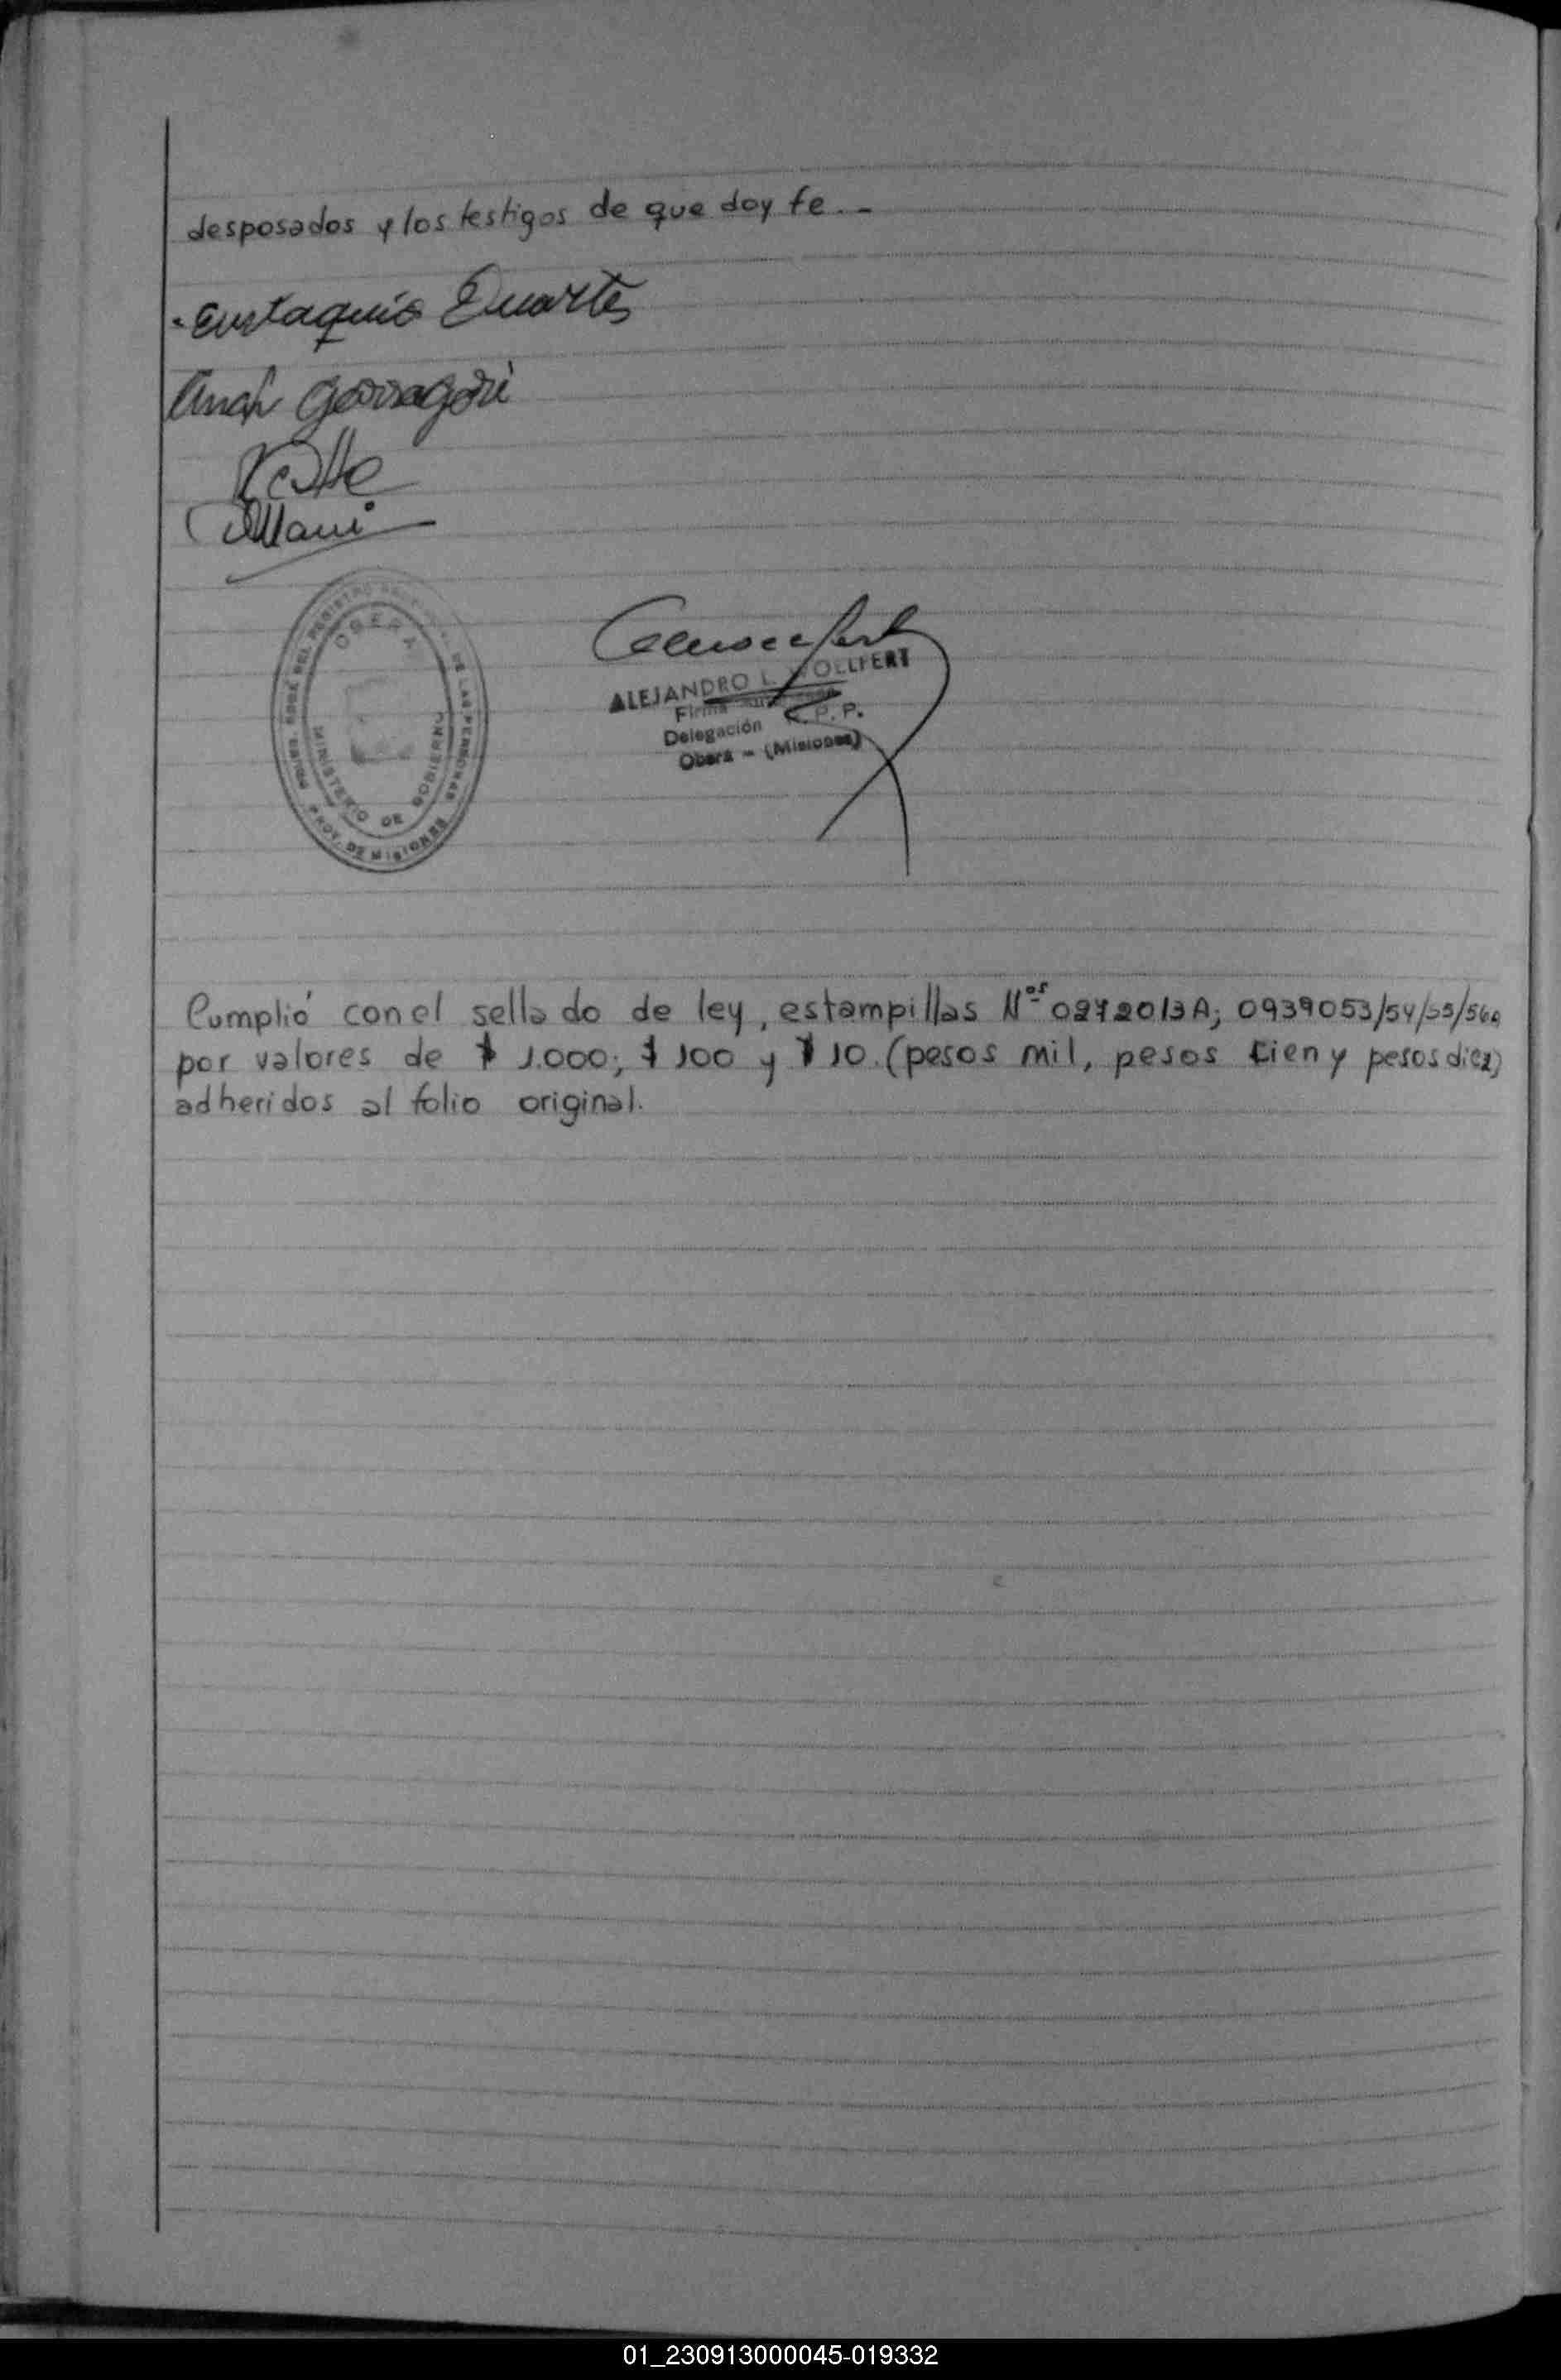 desposados y los testigos de que doy fe.-
Eustaquio Duarte
Garragori
OBERA
MINISTERIO DE GOBIERNO
DE LAS PERSONAS
PROV. DE MISIONES
ALEJANDRO L. WOLLFERT
Firma
Delegación R. P. P.
Oberá - (Misiones)
Cumplió con el sellado de ley, estampillas Nos 0272013A; 0939053/54/55/56A
por valores de $ 1.000; $ 100 y $ 10. (pesos mil, pesos cien y pesos diez)
adheridos al folio original.
01_230913000045-019332